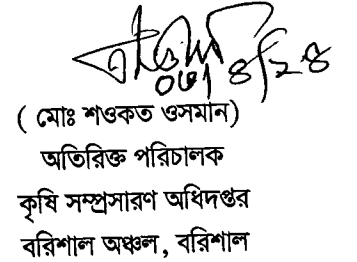 ০৩।৪/২৪
( মোঃ শওকত ওসমান)
অতিরিক্ত পরিচালক
কৃষি সম্প্রসারণ অধিদপ্তর
বরিশাল অঞ্চল, বরিশাল